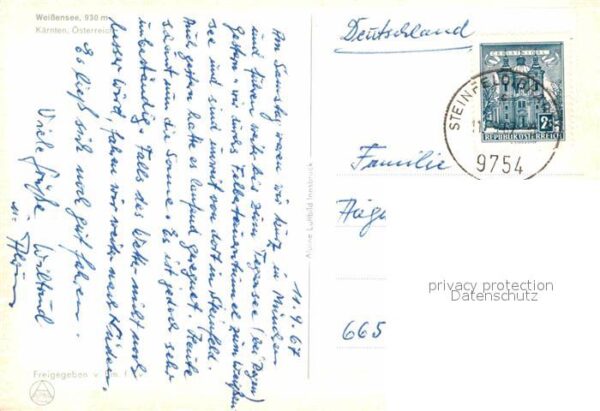 Weißensee, 930 m
Kärnten, Österreich
11.9.67
Am Samstag waren wir kurz in München
und fuhren weiter bis zum Tegernsee (bei Regen)
Gestern wir durchs Felbertauerntunnel zum Weißen
see und sind unweit von dort in Steinfeld.
Auch gestern hatte es laufend geregnet. Heute
scheint nun die Sonne. Es ist jedoch sehr
unbeständig. Falls das Wetter nicht noch
besser wird, fahren wir weiter nach Süden.
Es ließ sich noch gut fahren.
Viele Grüße Wiltrud
Freigegeben v.
Alpine Luftbild Innsbruck
Deutschland
STEINFELD
9754
2 S
REPUBLIK ÖSTERREICH
Familie
665
privacy protection
Datenschutz